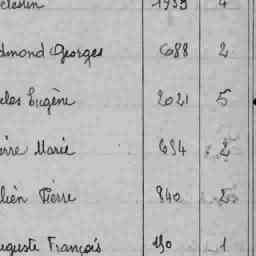 1939 4
dmond Georges 688 2
les Eugène 2021 5
erre Marie 694 2
lien Pierre 840 2
uguste François 190 1